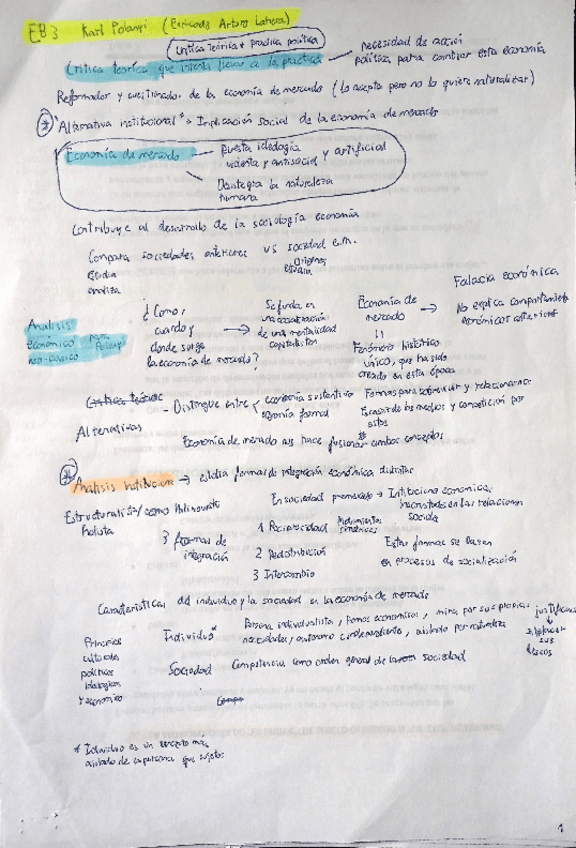 EB 3 Karl Polanyi (Enricods Arturo Lahera)
Critica teórica + practica política
Critica teórica que intenta llevar a la practica
necesidad de acción
política para cambiar esta economía
Reformador y cuestionador de la economía de mercado (lo acepta pero no lo quiere naturalizar)
"Alternativa institucional" Implicación social de la economía de mercado
Economía de mercado
Puesta ideología
violenta y antisocial y artificial
Desintegra la naturaleza
humana
Contribuye al desarrollo de la sociología economía
Compara sociedades anteriores vs sociedad e.m.
Estudia
analiza
Origenes
Falacia económica
No explica comportamientos
económicos anteriores
Analisis
económico para Polanyi
neo-clasico
¿Como,
cuando y
donde surge
la economía de mercado?
Se funda en
de una mentalidad
capitalista
Economía de
mercado
Fenómeno histórico
único, que ha sido
creado en esta época
Critica teórica
Alternativas
- Distingue entre
economía sustantiva
economía formal
Formas para sobrevivir y relacionarse
Escasez de los medios y competición por
estos
Economía de mercado nos hace fusionar ambos conceptos
Analisis institucional → estudia formas de integración económica distintas
Estructuralista/ como Malinowski
holista
3 formas de
integración
En sociedad premercado → Intituciones economicas
incrustadas en las relaciones
sociales
1 Reciprocidad Movimientos
simétricos
2 Redistribución
3 Intercambio
Estas formas se basan
en procesos de socialización
Características del individuo y la sociedad en la economía de mercado
Principios
culturales
políticos
ideologicos
y economico
Individuo*
Persona individualista, homos economicus, mira por sus propias
necesidades, autonomo e independiente, aislado por naturaleza
justificar
satisfacer
sus
deseos
Sociedad
Competencia como orden general de la sociedad
* Individuo es un concepto más
aislado de la persona que sujeto.
1